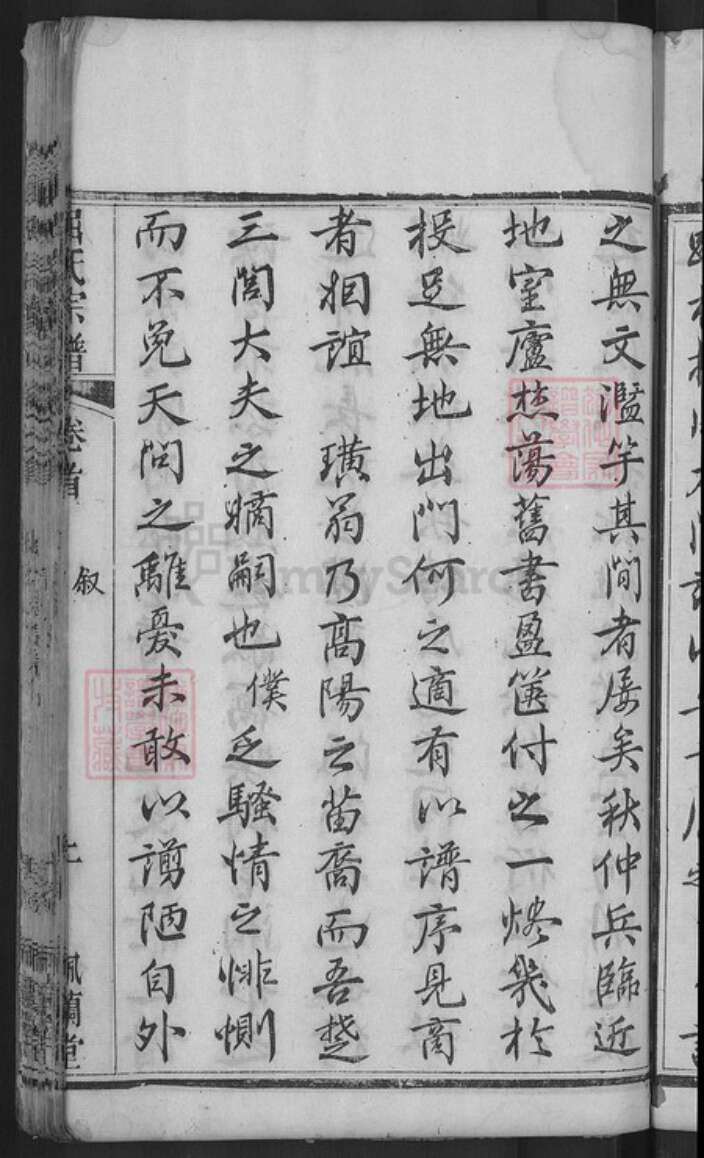 之無文濫竽其間者屢矣秋仲兵臨近
地室廬焚蕩舊書盈篋付之一燼幾於
投足無地出門何之適有以譜序見商
者相誼　璜翁乃高陽之苗裔而吾楚
三閭大夫之嫡嗣也僕乏騷情之悱惻
而不免天問之離憂未敢以謭陋自外
屈氏宗譜
卷首
叙
七
佩蘭堂
FamilySearch